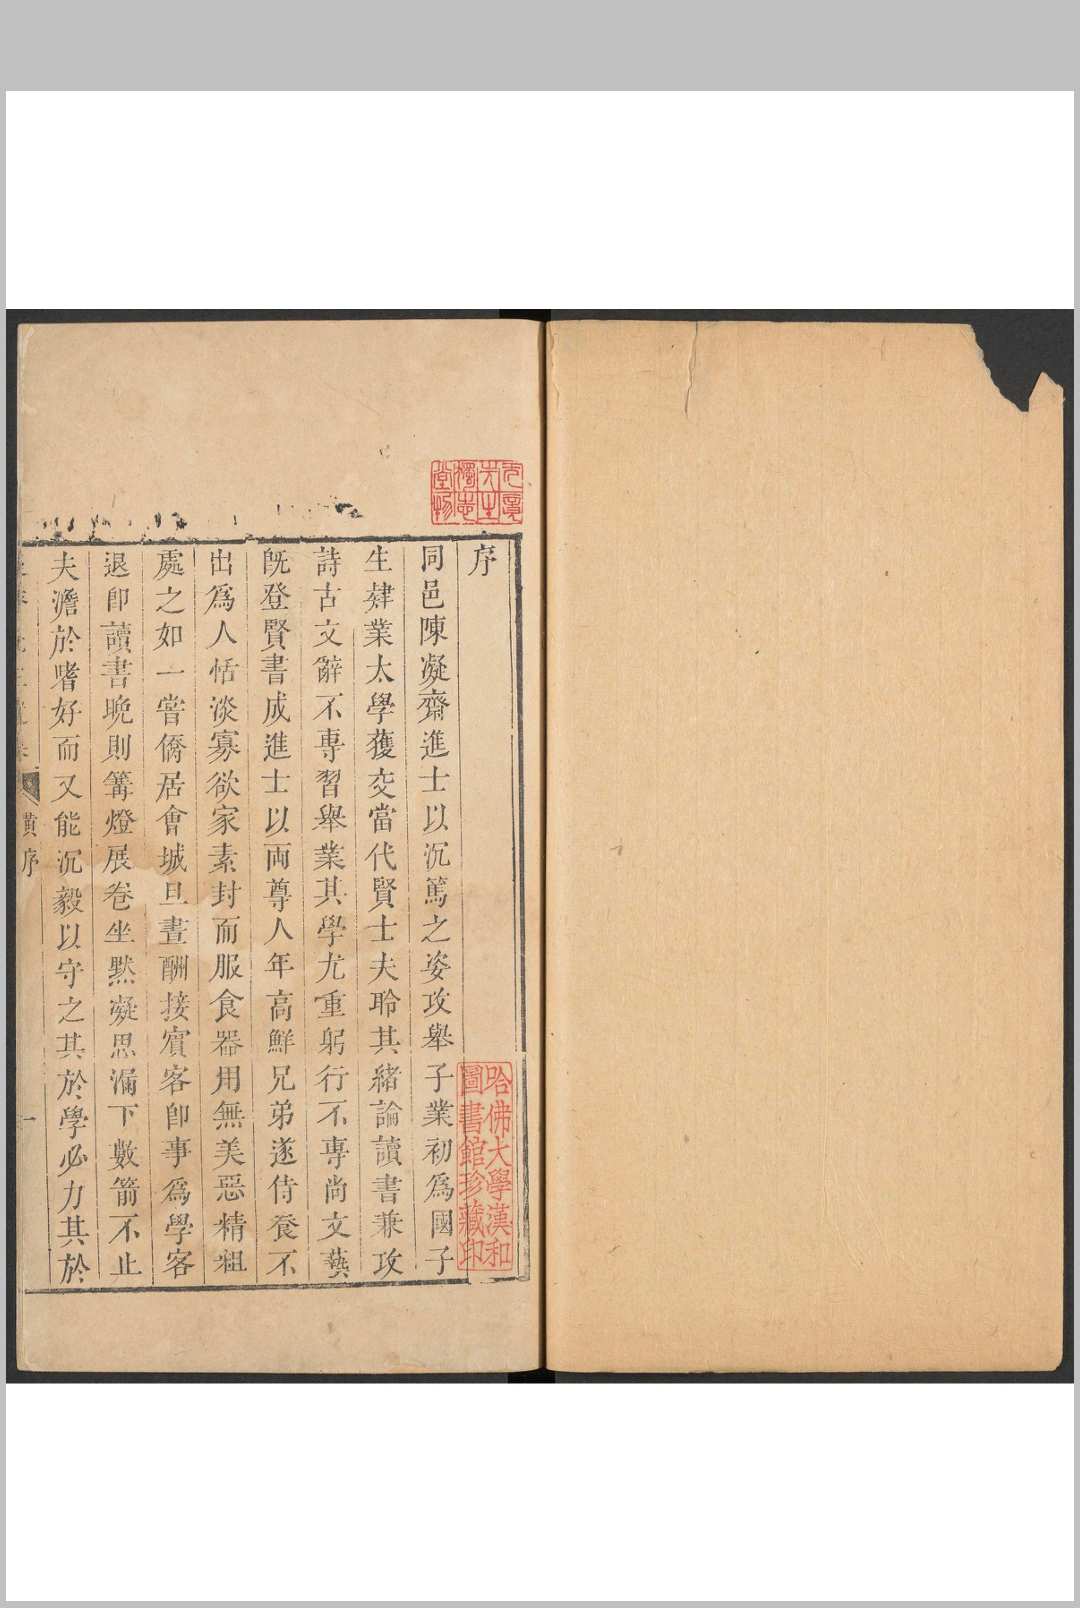 序
同邑陳凝齋進士以沉篤之姿攻舉子業初爲國子
生肄業太學獲交當代賢士夫聆其緒論讀書兼攻
詩古文辭不專習舉業其學尤重躬行不專尚文藝
既登賢書成進士以兩尊人年高鮮兄弟遂侍養不
出爲人恬淡寡欲家素封而服食器用無美惡精粗
處之如一嘗僑居會城旦晝酬接賓客即事爲學客
退即讀書晩則篝燈展卷坐默凝思漏下數箭不止
夫澹於嗜好而又能沉毅以守之其於學必力其於
序
一
哈佛大學漢和
圖書館珍藏印